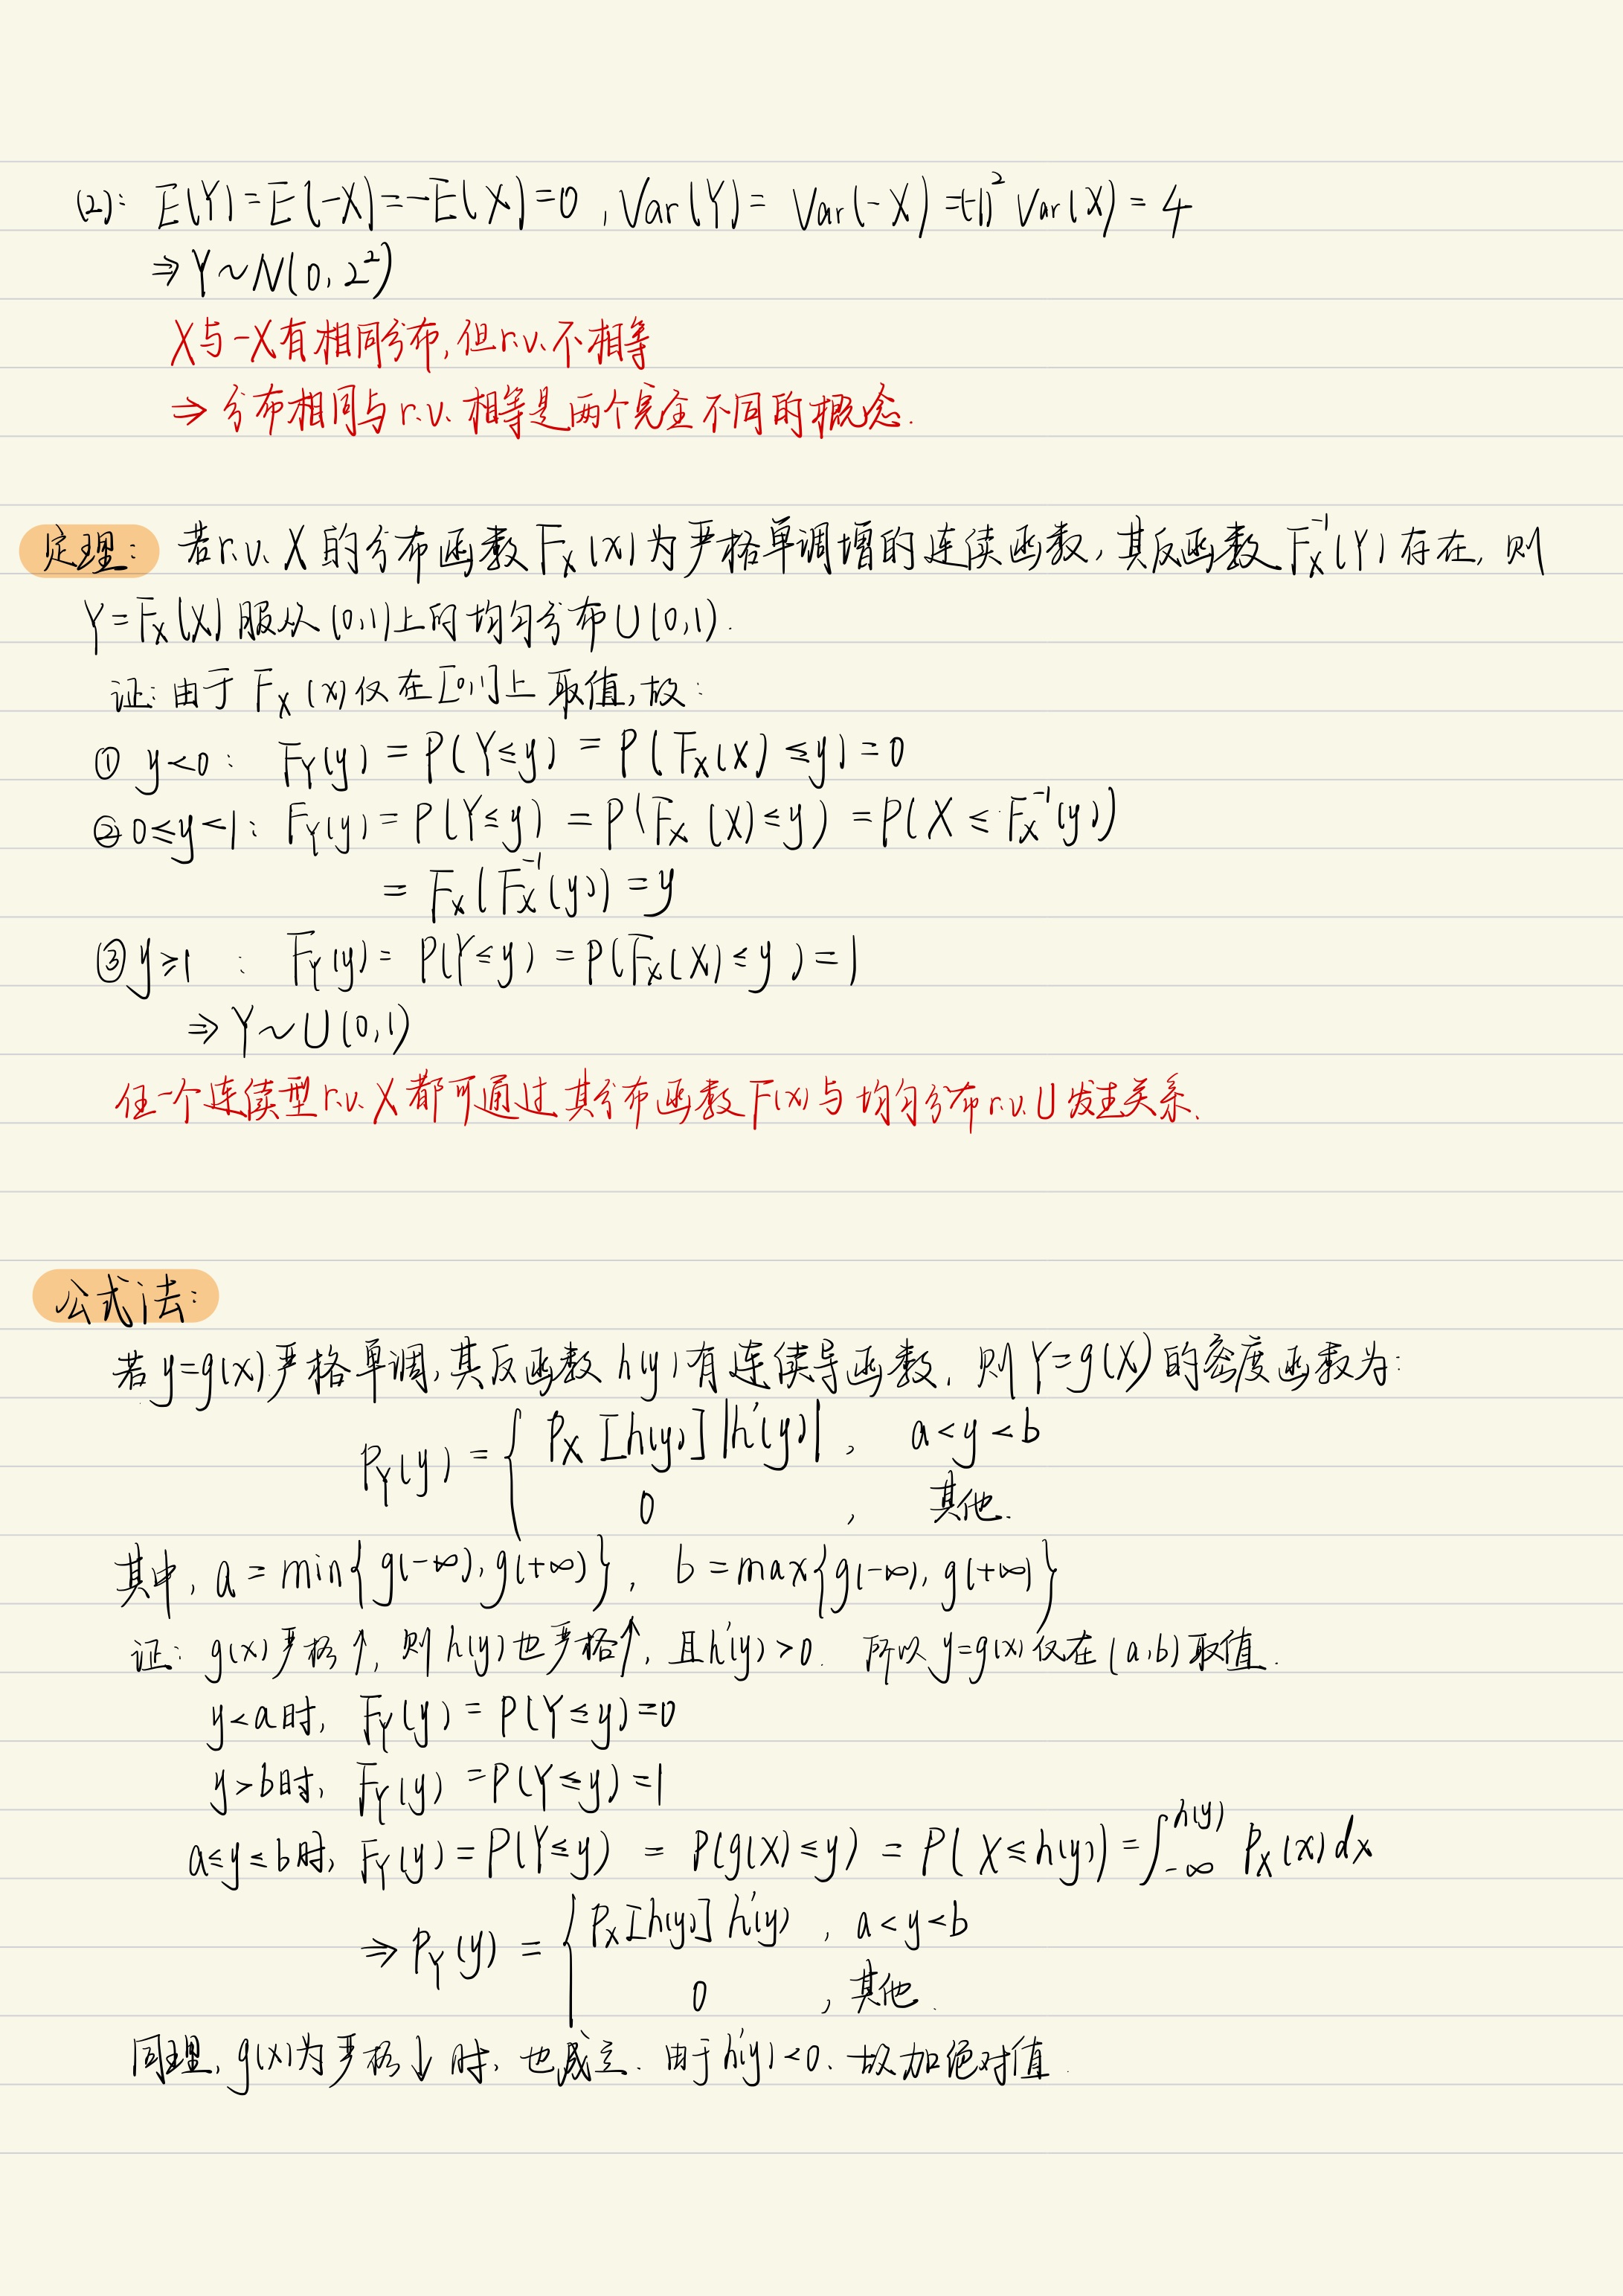 (2): E(Y)=E(-X)=-E(X)=0, Var(Y)= Var(-X)=(-1)² Var(X)=4
⇒ Y~N(0, 2²)
X与-X有相同分布,但r.v.不相等
⇒ 分布相同与r.v.相等是两个完全不同的概念.
定理: 若r.v. X的分布函数F_X(x)为严格单调增的连续函数,其反函数F_X⁻¹(Y)存在,则
Y=F_X(X)服从(0,1)上的均匀分布U(0,1).
证: 由于F_X(x)仅在[0,1]上取值,故:
① y<0: F_Y(y)=P(Y≤y)=P(F_X(X)≤y)=0
② 0≤y<1: F_Y(y)=P(Y≤y)=P(F_X(X)≤y)=P(X≤F_X⁻¹(y))
=F_X(F_X⁻¹(y))=y
③ y≥1: F_Y(y)=P(Y≤y)=P(F_X(X)≤y)=1
⇒ Y~U(0,1)
任一个连续型r.v. X都可通过其分布函数F(x)与均匀分布r.v. U发生关系.
公式法:
若y=g(x)严格单调,其反函数h(y)有连续导函数,则Y=g(X)的密度函数为:
P_Y(y)={ P_X[h(y)]|h'(y)|, a<y<b
0, 其他.
其中, a=min{g(-∞), g(+∞)}, b=max{g(-∞), g(+∞)}
证: g(x)严格↑,则h(y)也严格↑,且h'(y)>0. 所以y=g(x)仅在(a,b)取值.
y<a时, F_Y(y)=P(Y≤y)=0
y>b时, F_Y(y)=P(Y≤y)=1
a≤y≤b时, F_Y(y)=P(Y≤y)=P(g(X)≤y)=P(X≤h(y))=∫_{-∞}^{h(y)} P_X(x)dx
⇒ P_Y(y)={ P_X[h(y)] h'(y), a<y<b
0, 其他.
同理, g(x)为严格↓时,也成立.由于h'(y)<0.故加绝对值.